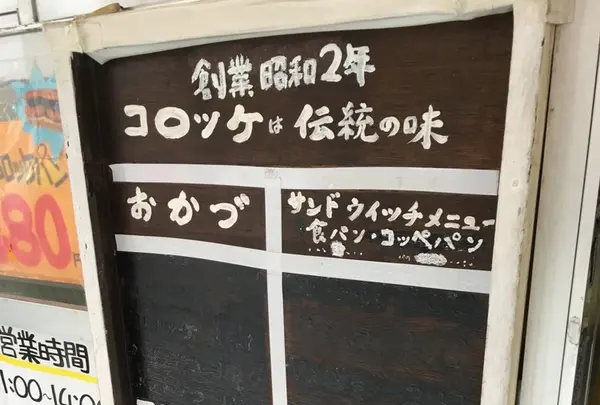 創業昭和2年
コロッケは伝統の味
おかづ
サンドウイッチメニュー
食パン・コッペパン
ロッケパン
80円
営業時間
1:00~14:00